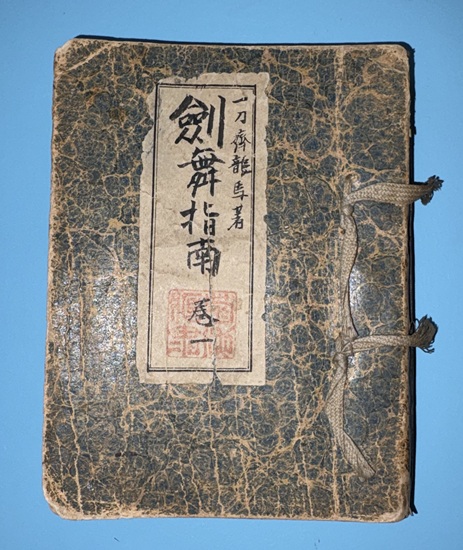 一刀齊龍馬著
劍舞指南 卷一